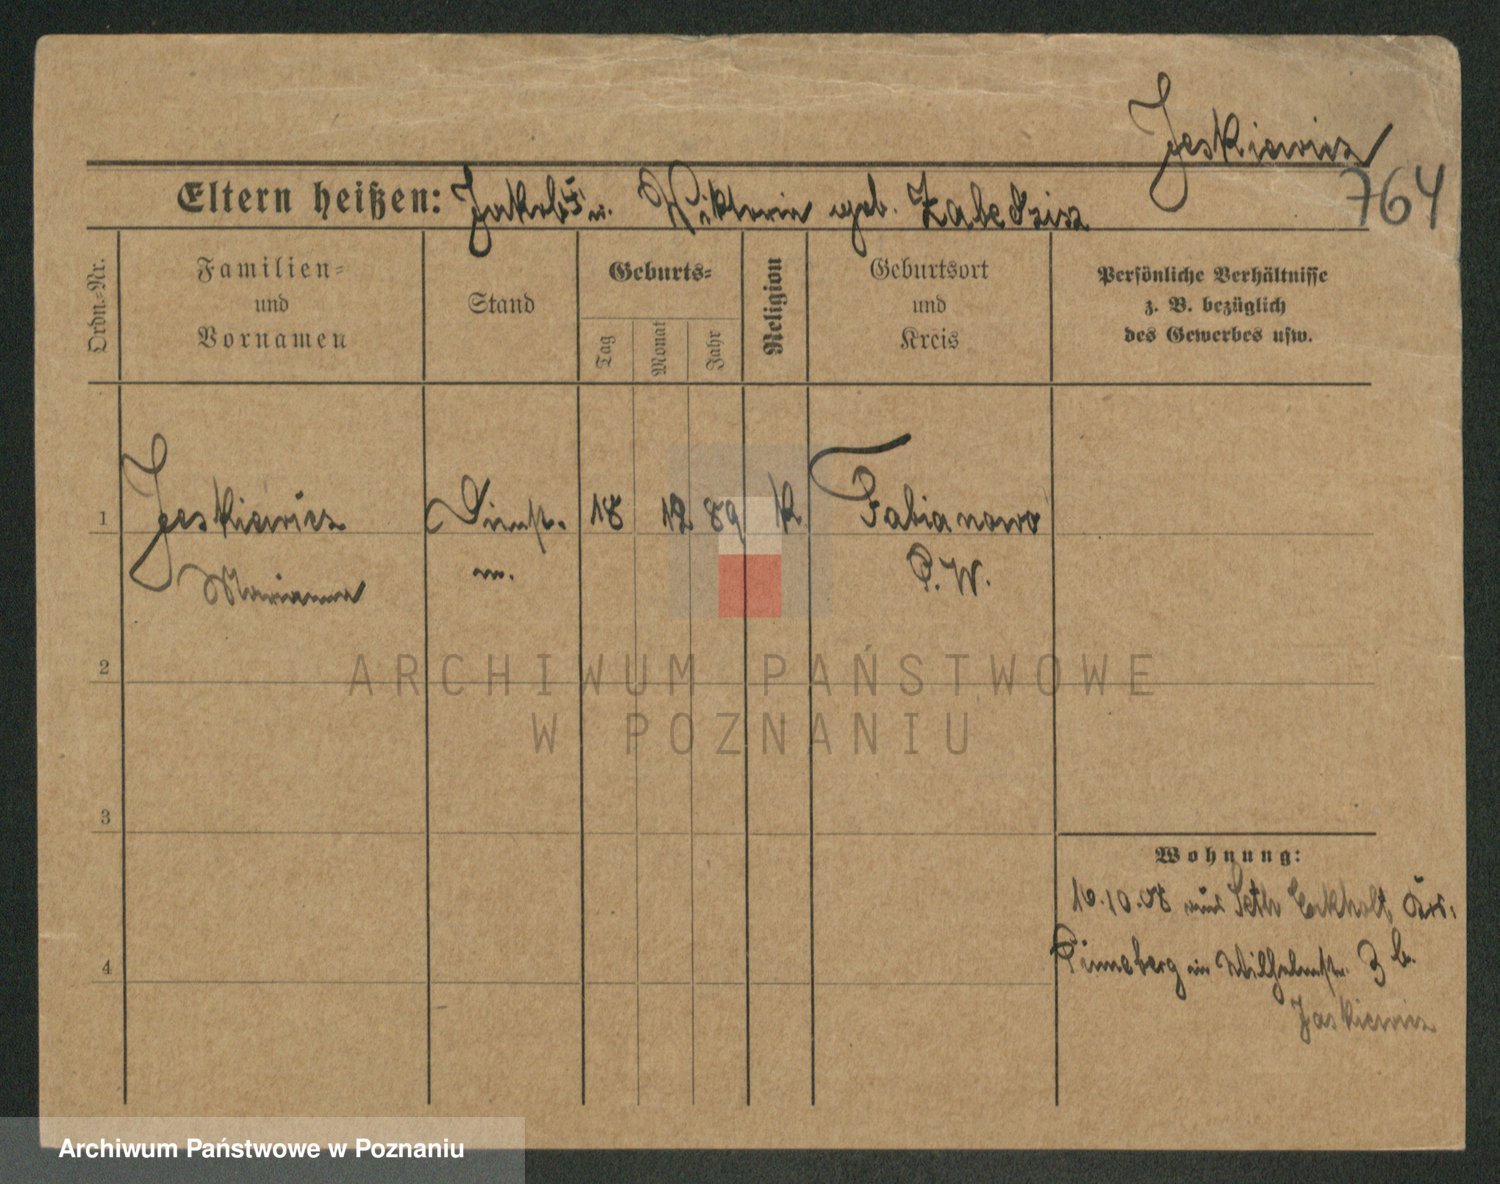 Jeskiewicz
764
Eltern heißen: Jakob u. Viktoria geb.
Ordn.-Nr.
Familien-
und
Vornamen
Stand
Geburts-
Tag
Monat
Jahr
Religion
Geburtsort
und
Kreis
Persönliche Verhältnisse
z. B. bezüglich
des Gewerbes usw.
1
Jeskiewicz
Marianna
Dienst-
m.
18
12
89
K
Fabianowo
P. W.
2
ARCHIWUM PAŃSTWOWE
W POZNANIU
3
4
Wohnung:
10.08 aus Seth Krs.
Pinneberg Wilhelmstr. 3 b.
Jaskiewicz
Archiwum Państwowe w Poznaniu